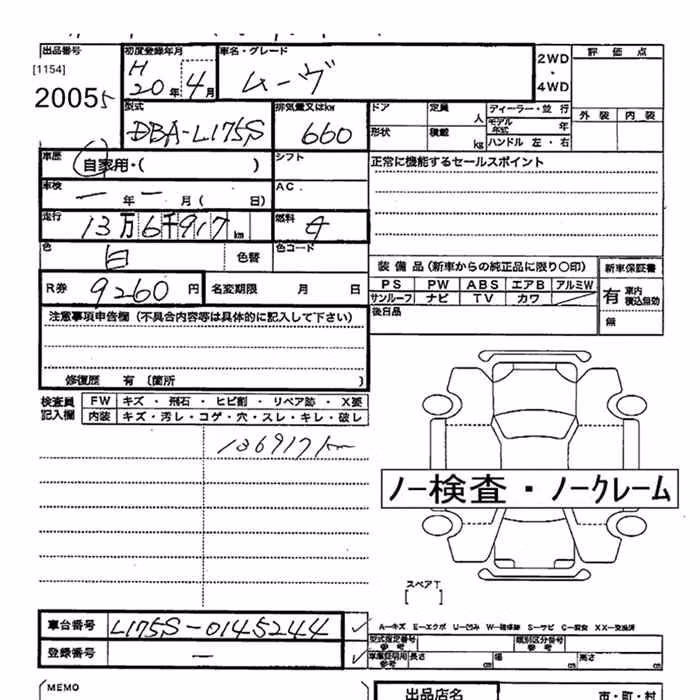 出品番号 初度登録年月 車名・グレード 2WD・4WD 評価点
[1154] H
20055 20年 4月 ムーヴ
外装 内装
型式 排気量又はkw ドア 定員 人 ディーラー・並行
DBA-L175S 660 モデル年式 年
形状 積載 kg ハンドル 左・右
車歴 自家用・( ) シフト 正常に機能するセールスポイント
車検 ー年ー月( 日) AC.
走行 13万6千917km 燃料 4
色 白 色替 色コード
装備品(新車からの純正品に限り〇印) 新車保証書
R券 9260円 名変期限 月 日 PS PW ABS エアB アルミW 有 車内積込無効
サンルーフ ナビ TV カワ
注意事項申告欄(不具合内容等は具体的に記入して下さい) 後日品 無
修復歴 有〔箇所 〕
検査員記入欄 FW キズ・飛石・ヒビ割・リペア跡・X要
内装 キズ・汚レ・コゲ・穴・スレ・キレ・破レ
136917km
ノー検査・ノークレーム
スペアT
[ ]
車台番号 L175S-0145244 ✓ A—キズ E—エクボ U—凹み W—補修跡 S—サビ C—腐食 XX—交換済
型式指定番号 参考 類別区分番号 参考
登録番号 ー ✓ 車庫証明用参考 長さ cm 幅 cm 高さ cm
MEMO 出品店名 市・町・村